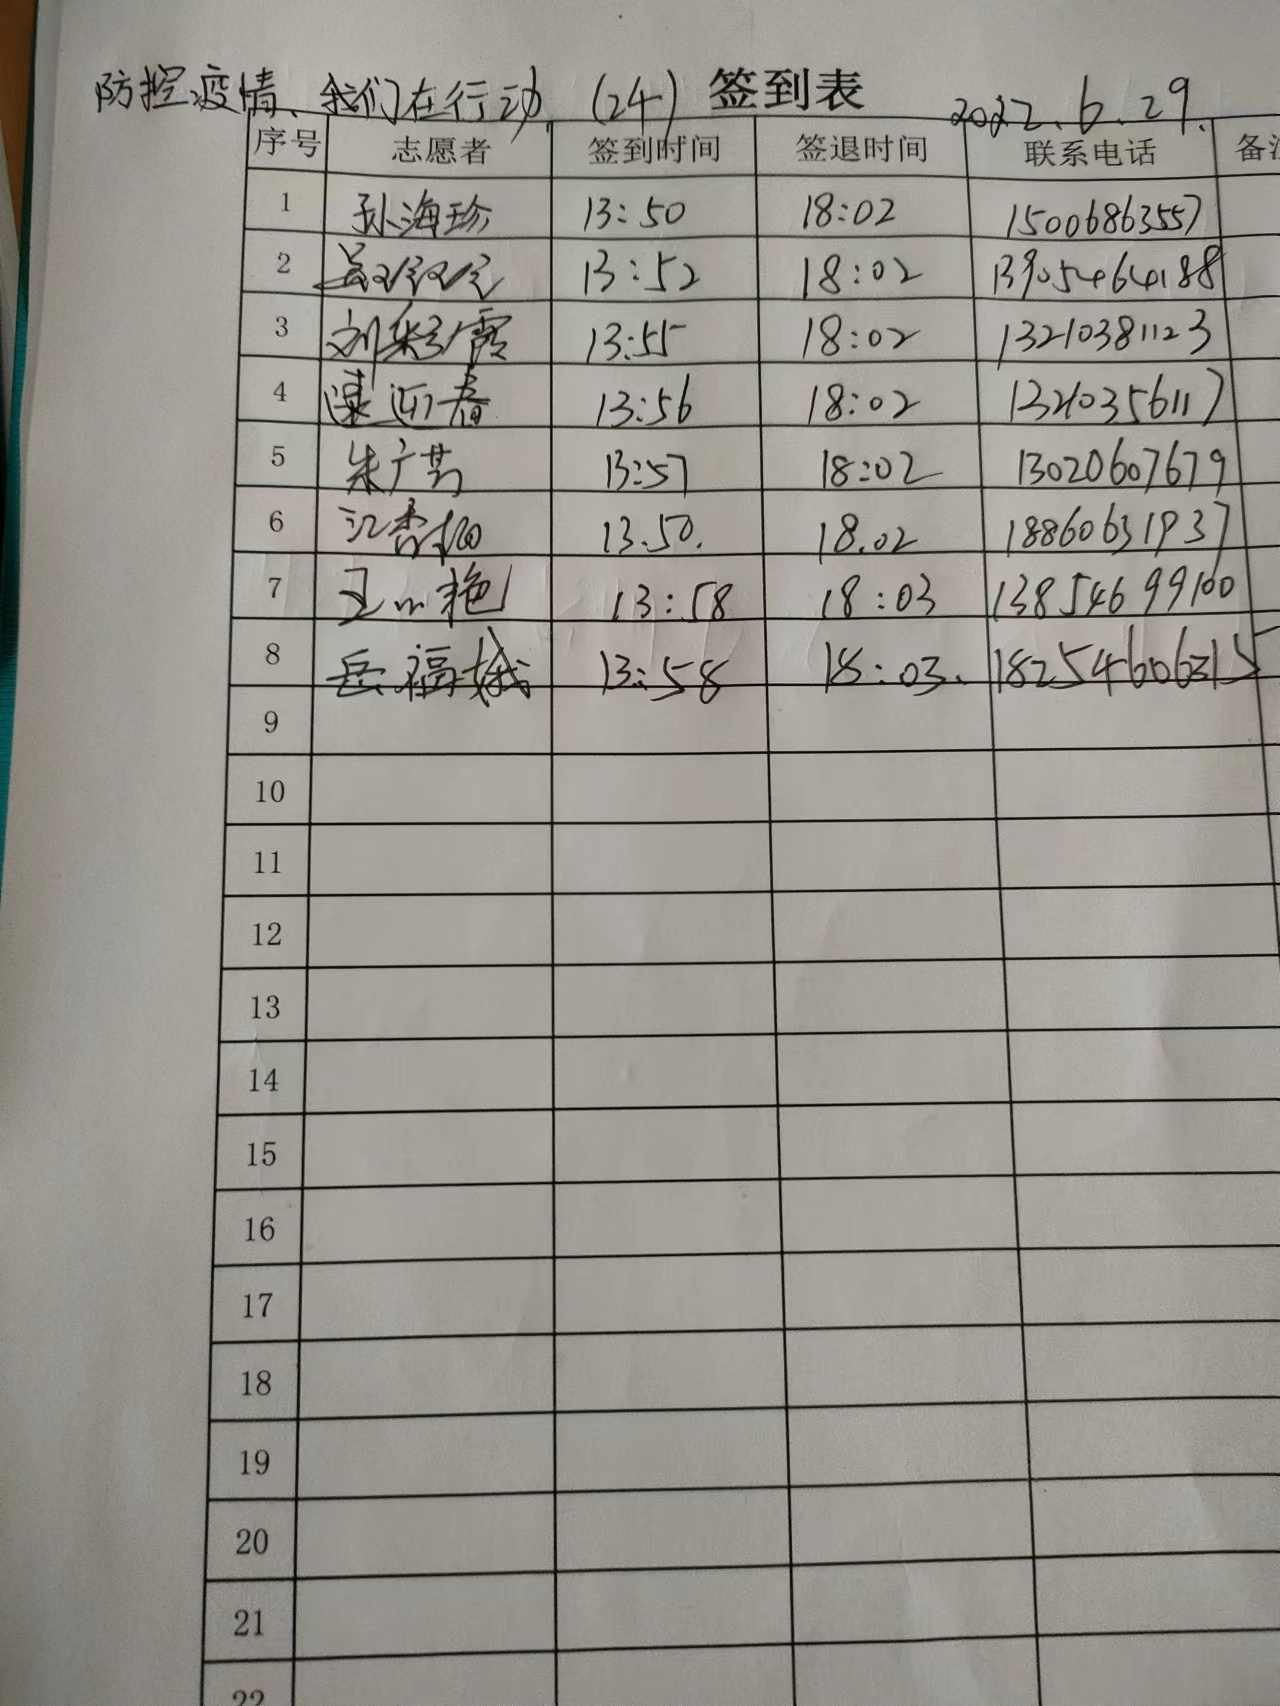 防控疫情、我们在行动 (24) 签到表 2022.6.29.
序号 志愿者 签到时间 签退时间 联系电话 备注
1 孙海珍 13:50 18:02 15006863557
2 13:52 18:02 13905464188
3 刘彩霞 13:55 18:02 13210381123
4 逯迎春 13:56 18:02 13210356117
5 朱广芳 13:57 18:02 13020607679
6 江香 13.50. 18.02 18860631937
7 王小艳 13:58 18:03 13854699100
8 岳福娥 13:58 18:03. 18254606315
9
10
11
12
13
14
15
16
17
18
19
20
21
22